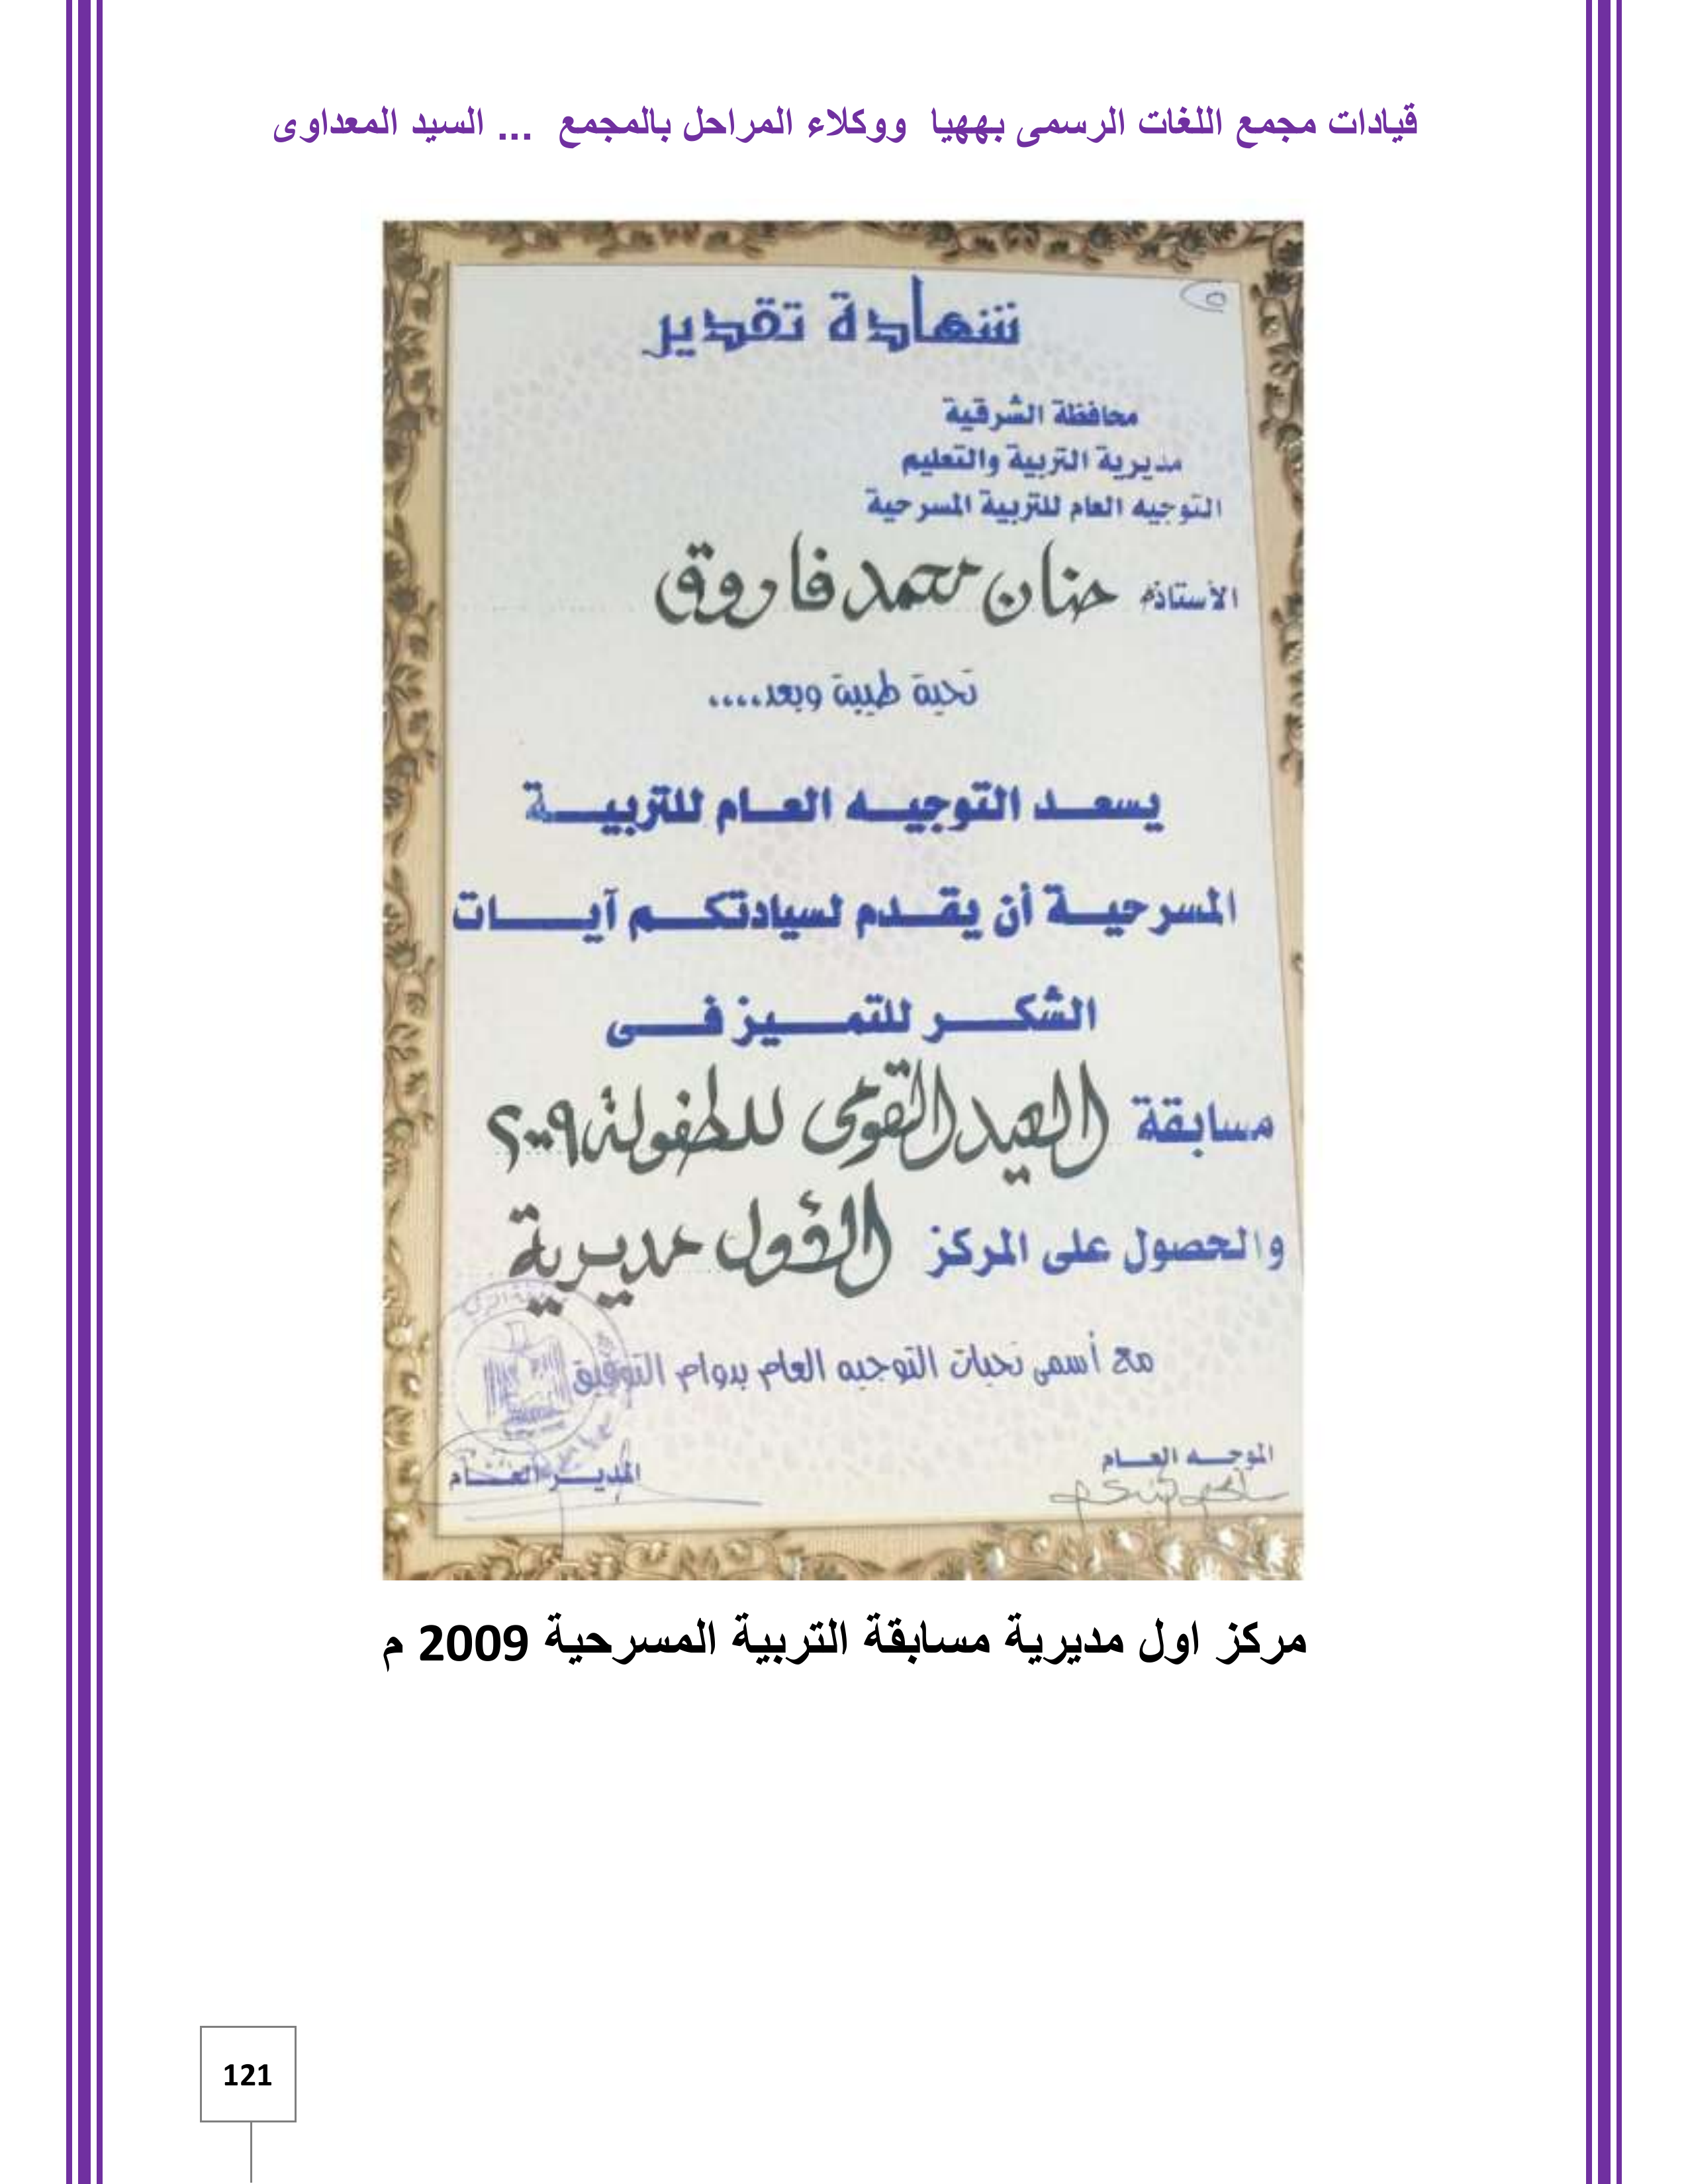 قيادات مجمع اللغات الرسمى بههيا ووكلاء المراحل بالمجمع ... السيد المعداوى
شهادة تقدير
محافظة الشرقية
مديرية التربية والتعليم
التوجيه العام للتربية المسرحية
الأستاذة حنان محمد فاروق
تحية طيبة وبعد،،،،
يسعد التوجيه العام للتربية
المسرحية أن يقدم لسيادتكم آيات
الشكر للتميز فى
مسابقة العيد القومى للطفولة ٢٠٠٩
والحصول على المركز الأول مديرية
مع أسمى تحيات التوجيه العام بدوام التوفيق
الموجه العام
المدير العام
مركز اول مديرية مسابقة التربية المسرحية 2009 م
121